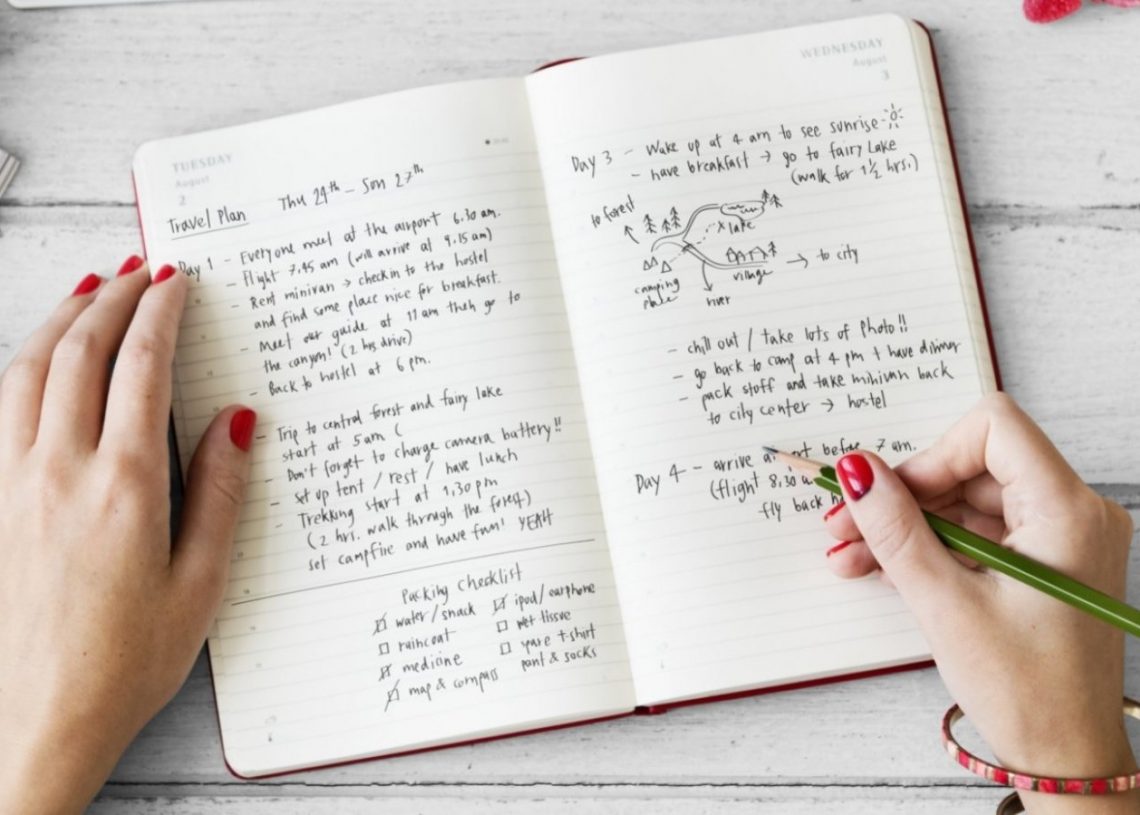 TUESDAY
August
2
Travel Plan
Thu 24th - Sun 27th
Day 1 - Everyone meet at the airport 6.30 am.
- Flight 7.45 am (will arrive at 9.15 am)
- Rent minivan → checkin to the hostel
and find some place nice for breakfast.
- Meet our guide at 11 am then go to
the canyon! (2 hrs drive)
- Back to hostel at 6 pm.
- Trip to central forest and fairy lake
start at 5 am (
- Don't forget to charge camera battery!!
- set up tent / rest / have lunch
- Trekking start at 1,30 pm
(2 hrs. walk through the forest)
set campfire and have fun! YEAH
Packing Checklist
water/snack
raincoat
medicine
map & compass
ipod/earphone
wet tissue
spare t-shirt
pant & socks
WEDNESDAY
August
3
Day 3 - Wake up at 4 am to see sunrise
- have breakfast → go to fairy Lake
(walk for 1½ hrs.)
to forest
x lake
camping
place
village
→ to city
river
- chill out / take lots of photo!!
- go back to camp at 4 pm + have dinner
- pack stuff and take minivan back
to city center → hostel
Day 4 - arrive before 7 am.
(flight 8,30
fly back